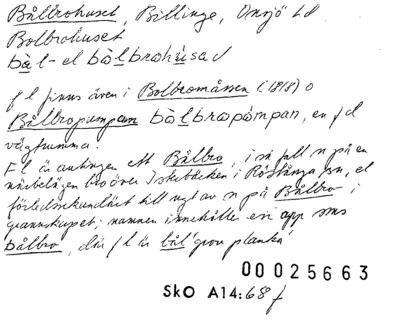 Bålbrohuset, Billinge, Onsjö hd
Bolbrohuset,
bàl- el bòlbrohúsad
f l finns även i Bolbromåssen (1818) o
Bålbropumpan bòlbropómpan, en f d
vägtrumma.
F l är antingen ett Bålbro, i så fall n på en
närbelägen bro över Iskebäcken i Röstånga sn, el
förledssekundärt till ngt av n på Bålbro i
grannskapet; namnen innehåller ev app sms
bålbro, där f l är bål 'grov planka'
00025663
SkO A14:68 f